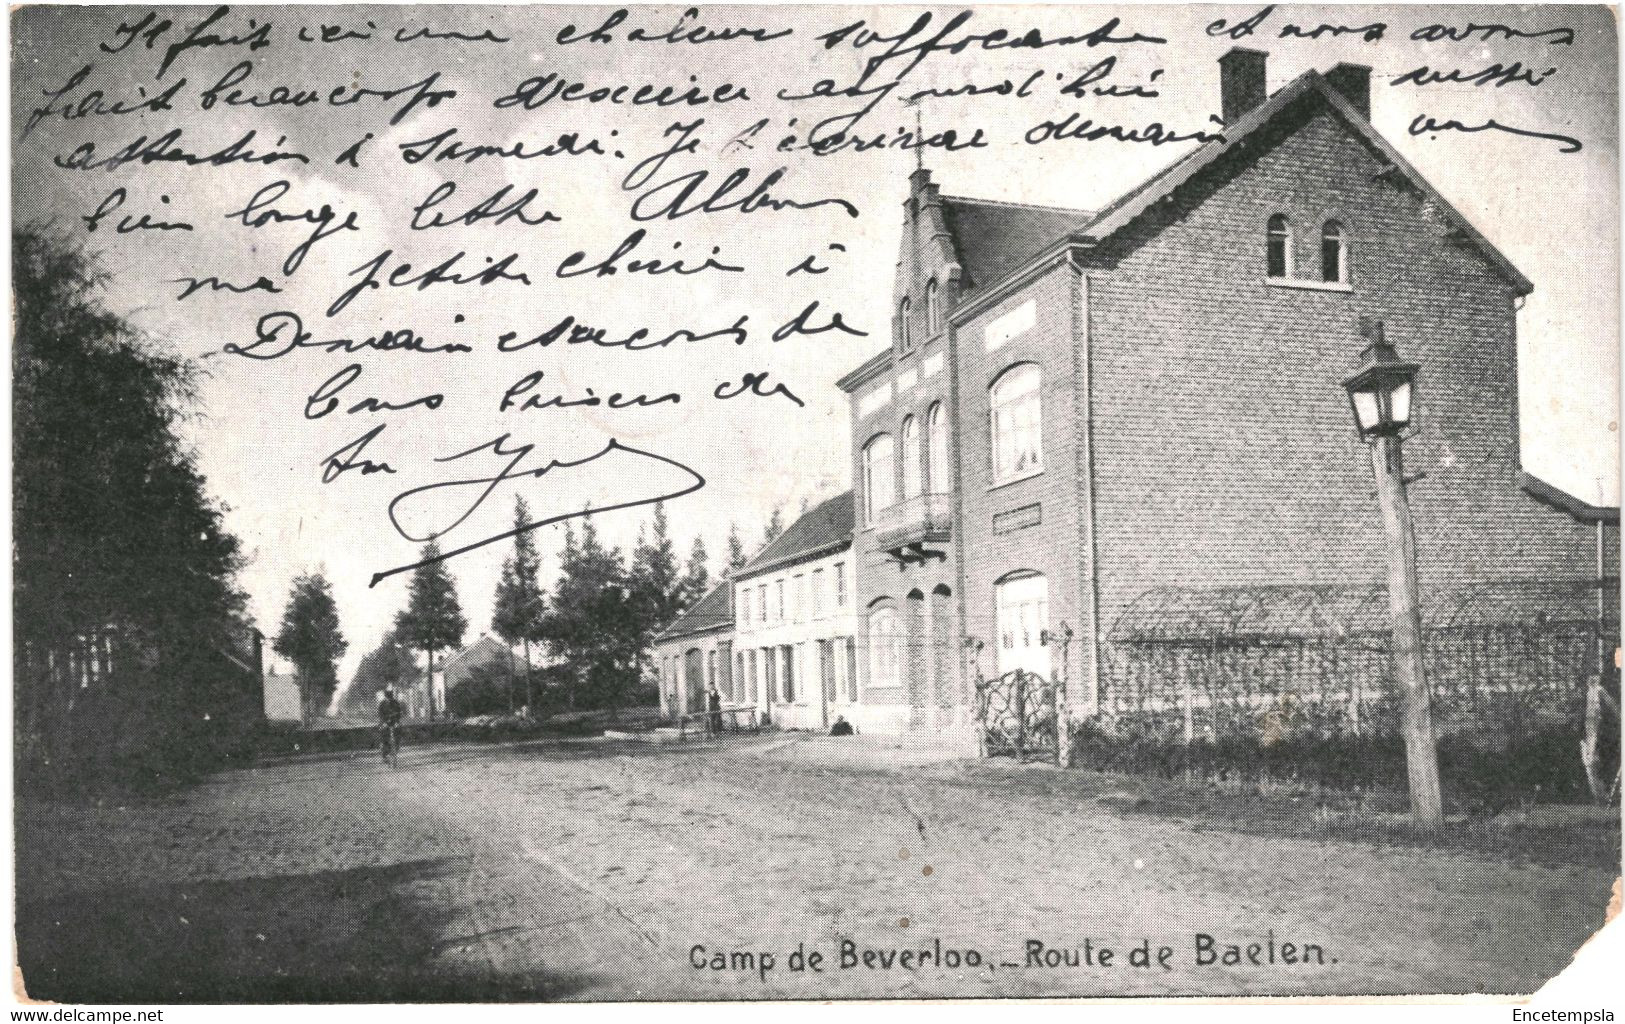 Il fait ici une chaleur suffocante et nous avons
fait beaucoup d'exercice aujourd'hui aussi
attention à samedi. Je t'écrirai demain une
bien longue lettre
ma petite chérie à
Demain et reçois de
bons baisers de
ton
Camp de Beverloo._Route de Baelen.
www.delcampe.net
Encetempsla